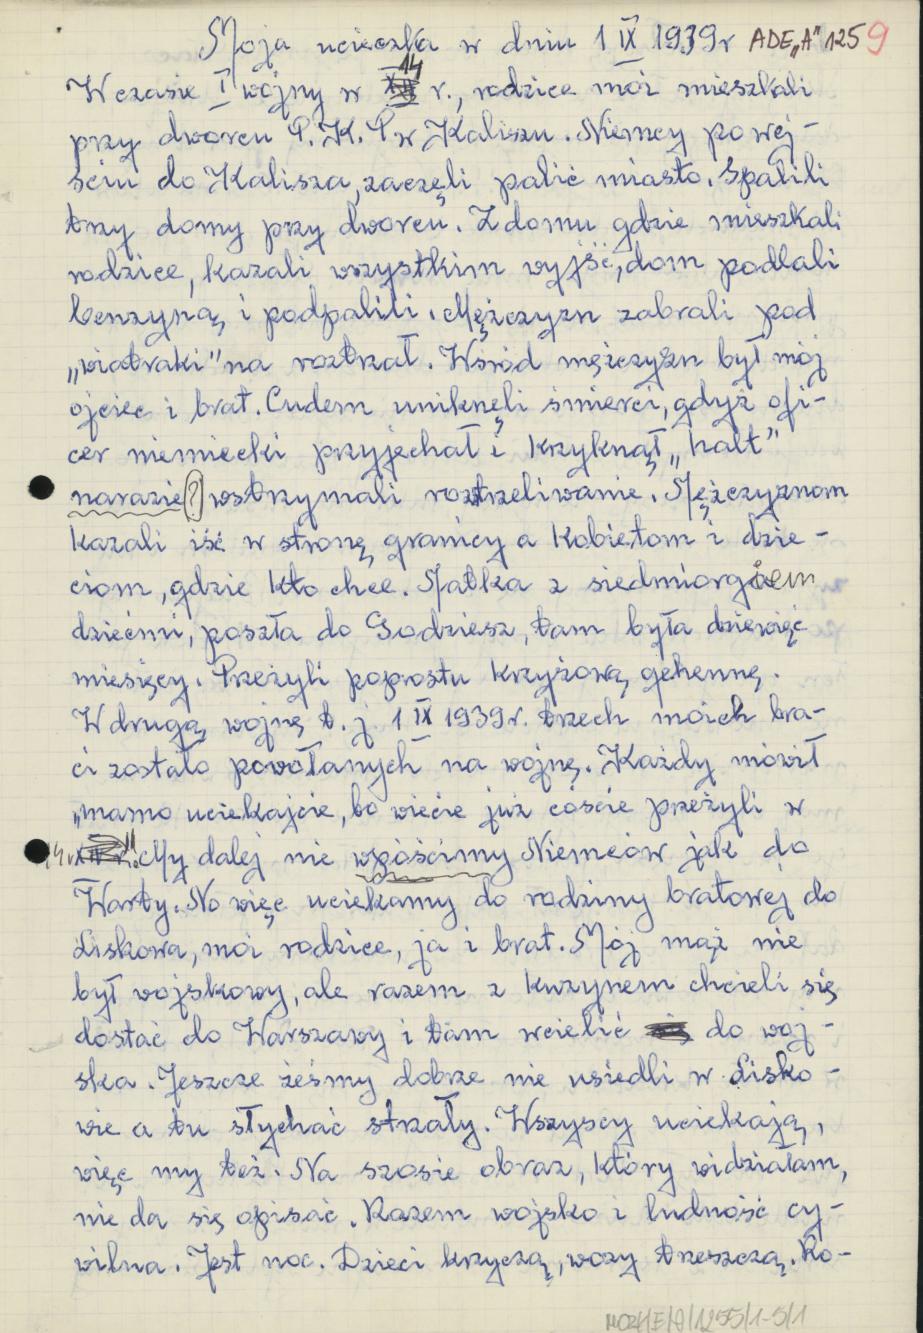 Moja ucieczka w dniu 1 IX 1939r ADE„A" 1259
W czasie I wojny w 14 r., rodzice moi mieszkali
przy dworcu P.K.P w Kaliszu. Niemcy po wej-
ściu do Kalisza, zaczęli palić miasto. Spalili
trzy domy przy dworcu. Z domu gdzie mieszkali
rodzice, kazali wszystkim wyjść, dom podlali
benzyną, i podpalili. Mężczyzn zabrali pod
„wiatraki" na roztrzał. Wśród mężczyżn był mój
ojciec i brat. Cudem uniknęli śmierci, gdyż ofi-
cer niemiecki przyjechał i krzyknął „halt"
narazie (?) wstrzymali roztrzeliwanie. Mężczyznom
kazali iść w stronę granicy a kobietom i dzie-
ciom, gdzie kto chce. Matka z siedmiorgiem
dziećmi, poszła do Godziesz, tam była dziewięć
miesięcy. Preżyli poprostu krzyżową gehennę.
W drugą wojnę t. j. 1 IX 1939r. trzech moich bra-
ci zostało powołanych na wojnę. Każdy mówił
„mamo uciekajcie, bo wiecie już coście preżyli w
14r." My dalej nie wpóścimy Niemców jak do
Warty. No więc uciekamy do rodziny bratowej do
Liskowa, moi rodzice, ja i brat. Mój mąż nie
był wojskowy, ale razem z kuzynem chcieli się
dostać do Warszawy i tam wcielić do woj-
ska. Jeszcze żeśmy dobrze nie usiedli w Lisko-
wie a tu słychać strzały. Wszyscy uciekają,
więc my też. Na szosie obraz, który widziałam,
nie da się opisać. Razem wojsko i ludność cy-
wilna. Jest noc. Dzieci krzyczą, wozy trzeszczą. Ro-